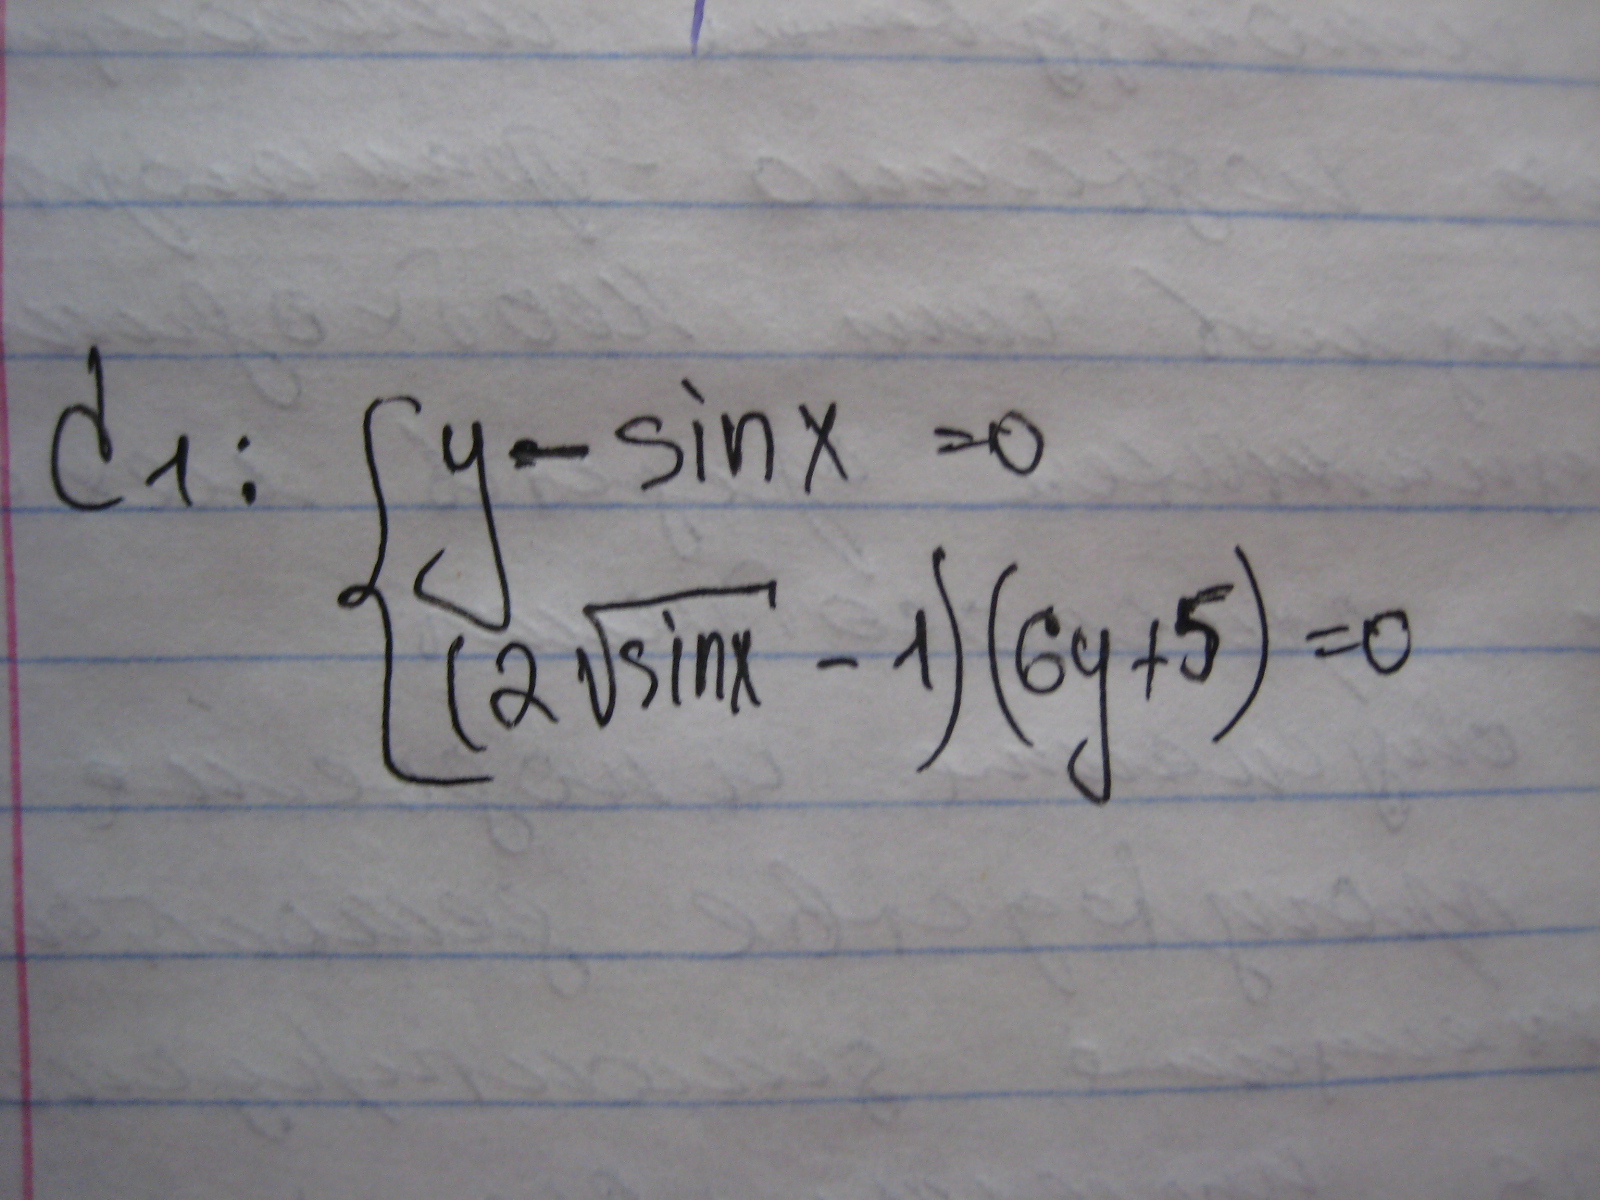 C1: { y - sinx = 0
(2√sinx - 1)(6y + 5) = 0